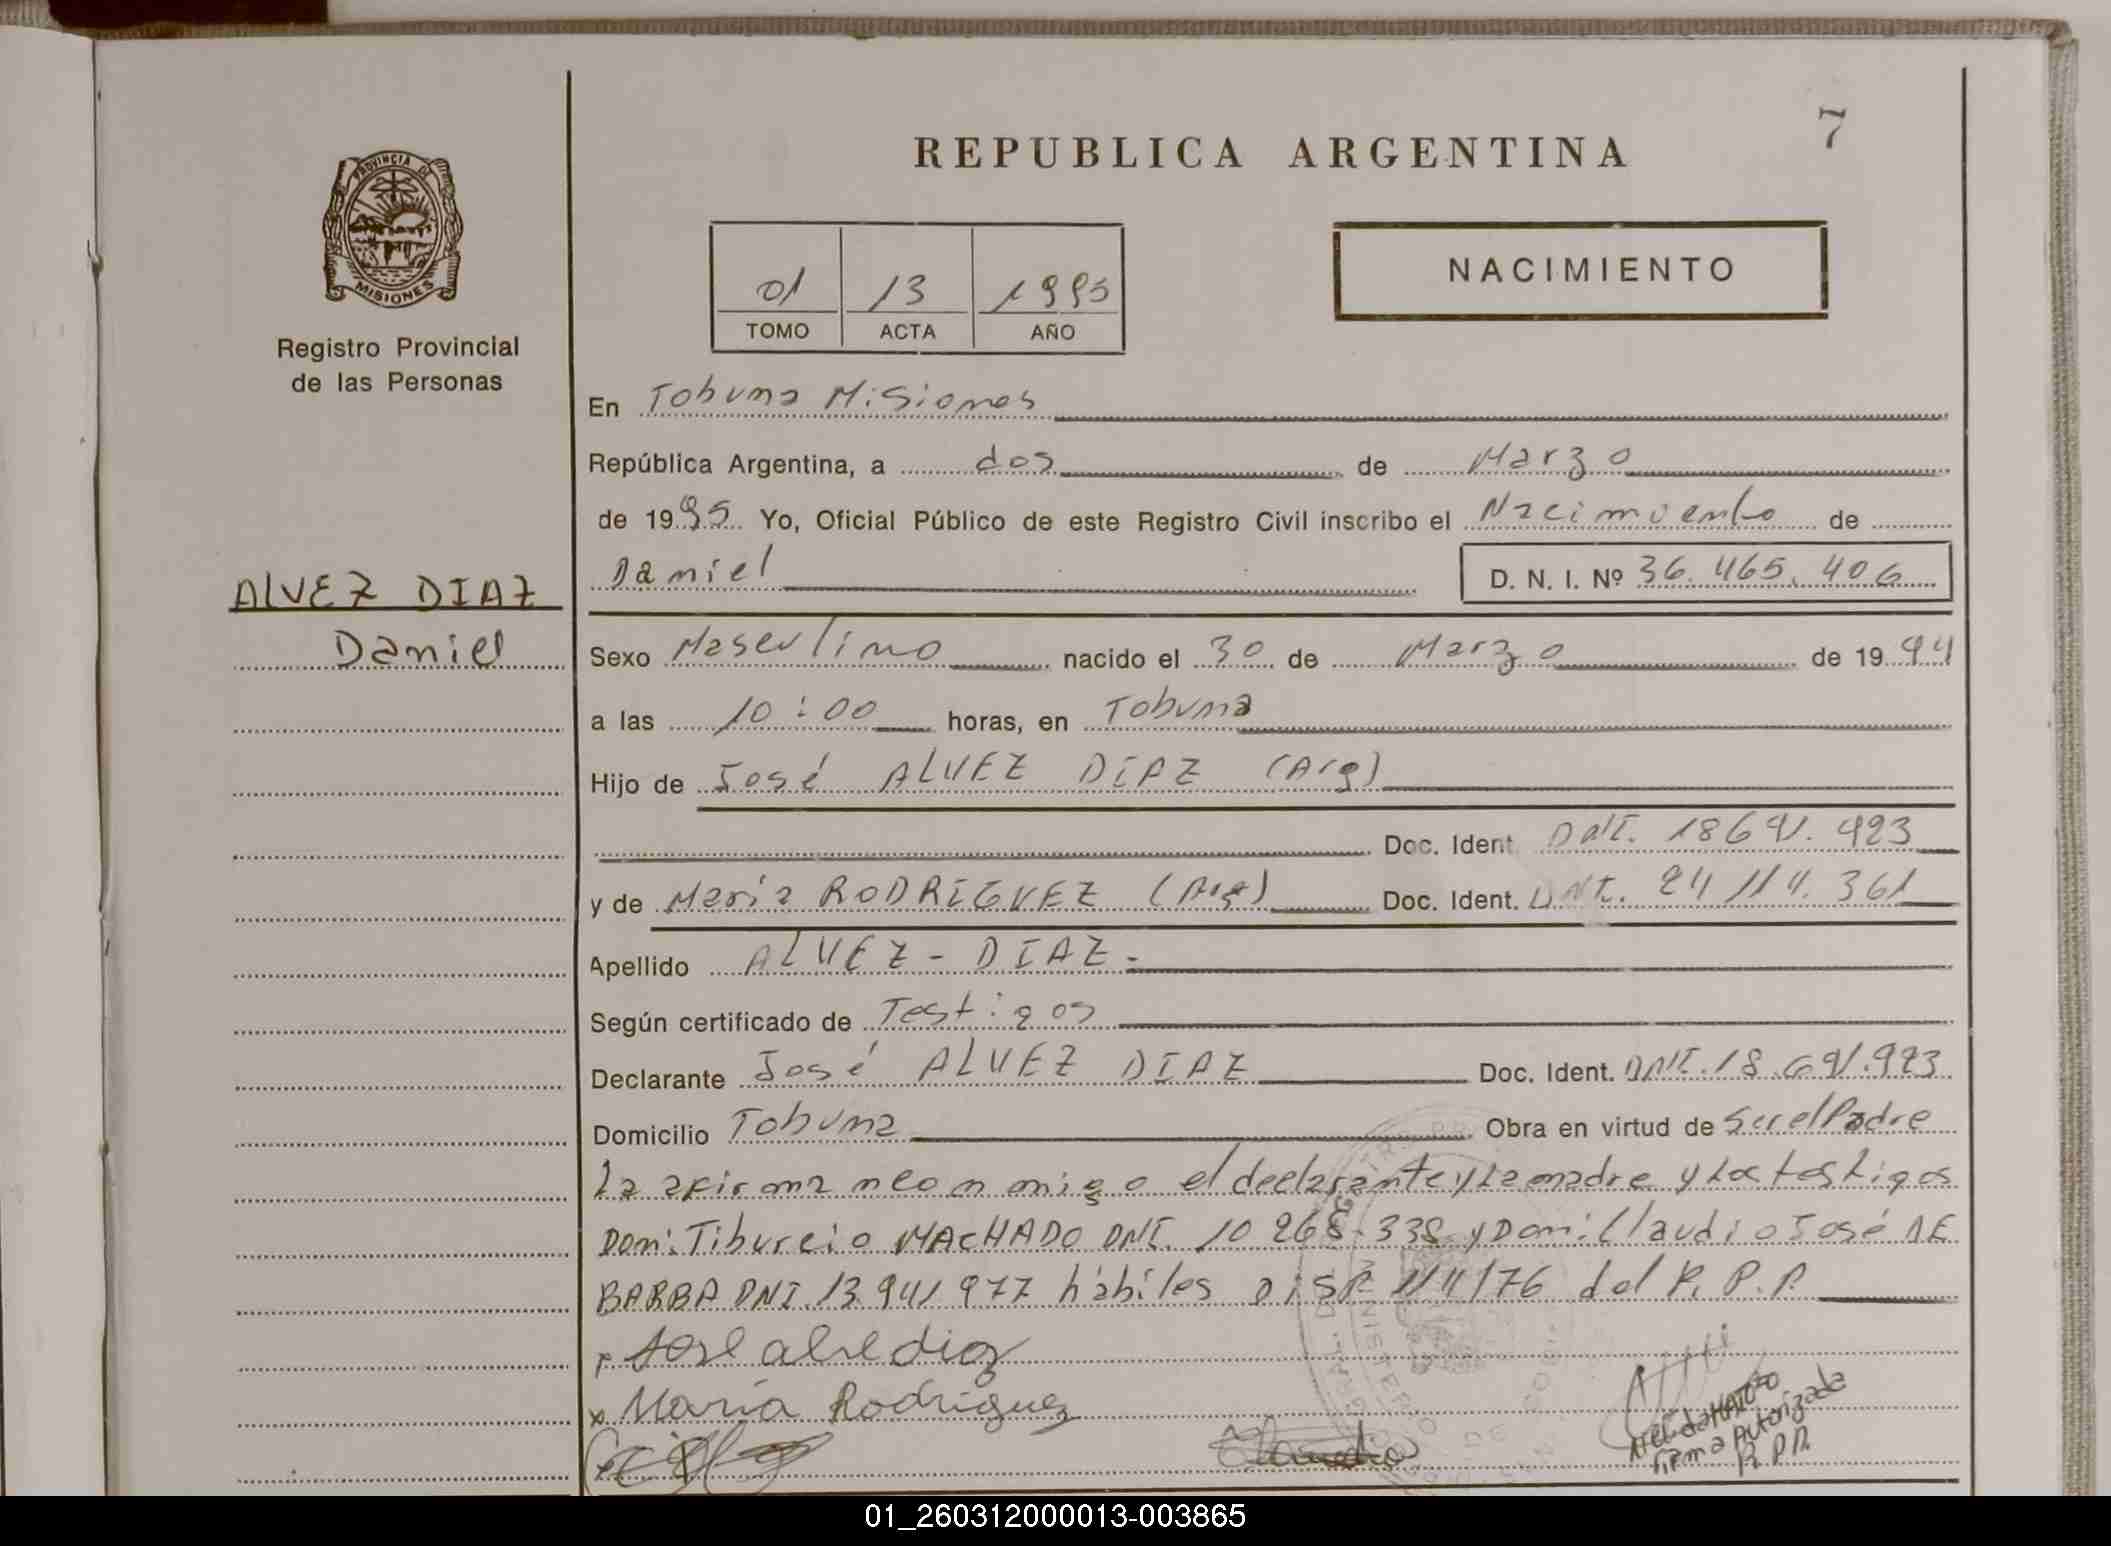 7
REPUBLICA ARGENTINA
PROVINCIA DE
MISIONES
Registro Provincial
de las Personas
01 13 1995
TOMO ACTA AÑO
NACIMIENTO
En Tobuna Misiones
República Argentina, a dos de Marzo
de 1995 Yo, Oficial Público de este Registro Civil inscribo el Nacimiento de
Daniel D. N. I. Nº 36.465.406
ALVEZ DIAZ
Daniel
Sexo Masculino nacido el 30 de Marzo de 1994
a las 10:00 horas, en Tobuna
Hijo de José ALVEZ DIAZ (Arg)
Doc. Ident. DNI.
y de María RODRIGUEZ (Arg) Doc. Ident. DNI. 24 114.361
Apellido ALVEZ - DIAZ -
Según certificado de Testigos
Declarante José ALVEZ DIAZ Doc. Ident. DNI.
Domicilio Tobuna Obra en virtud de Ser el Padre
La afirman con migo el declarante y la madre y los testigos
Don: Tiburcio MACHADO DNI. 10 268.338 y Don: Claudio José DE
BARBA DNI. 13.941 977 hábiles DISP. 114/76 del R. P. P.
x José alve diaz
x María Rodriguez
Claudio
Firma Autorizada
R.P.P.
01_260312000013-003865